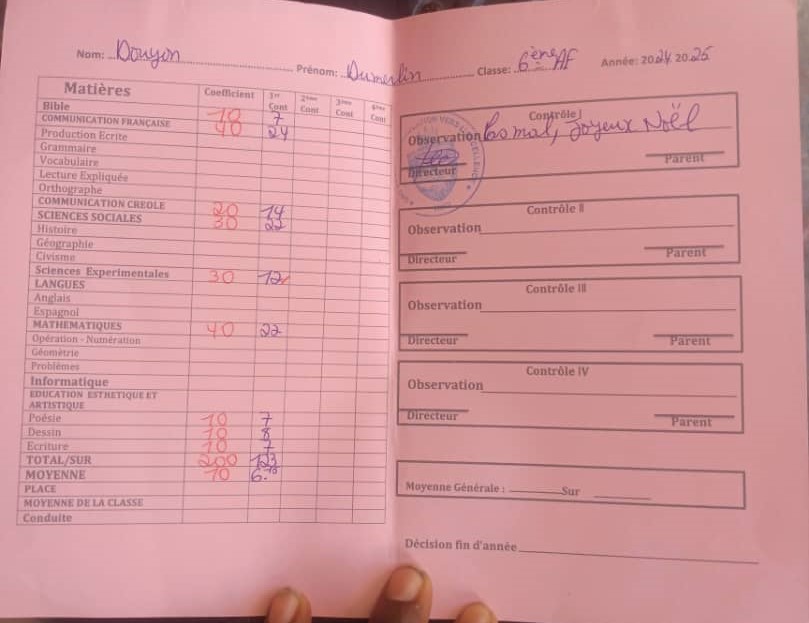 Nom: Douyon Prénom: Dumerlin Classe: 6ème AF Année: 2024 2025
Matières Coefficient 1er Cont 2ème Cont 3ème Cont 4ème Cont
Bible 10 7
COMMUNICATION FRANÇAISE 40 24
Production Ecrite
Grammaire
Vocabulaire
Lecture Expliquée
Orthographe
COMMUNICATION CREOLE 20 14
SCIENCES SOCIALES 30 22
Histoire
Géographie
Civisme
Sciences Experimentales 30 12
LANGUES
Anglais
Espagnol
MATHEMATIQUES 40 22
Opération - Numération
Géométrie
Problèmes
Informatique
EDUCATION ESTHETIQUE ET
ARTISTIQUE
Poésie 10 7
Dessin 10 8
Ecriture 10 7
TOTAL/SUR 200 123
MOYENNE 10 6.
PLACE
MOYENNE DE LA CLASSE
Conduite
Contrôle I
Observation Pas mal, Joyeux Noël
Directeur Parent
Contrôle II
Observation
Directeur Parent
Contrôle III
Observation
Directeur Parent
Contrôle IV
Observation
Directeur Parent
Moyenne Générale : Sur
Décision fin d'année